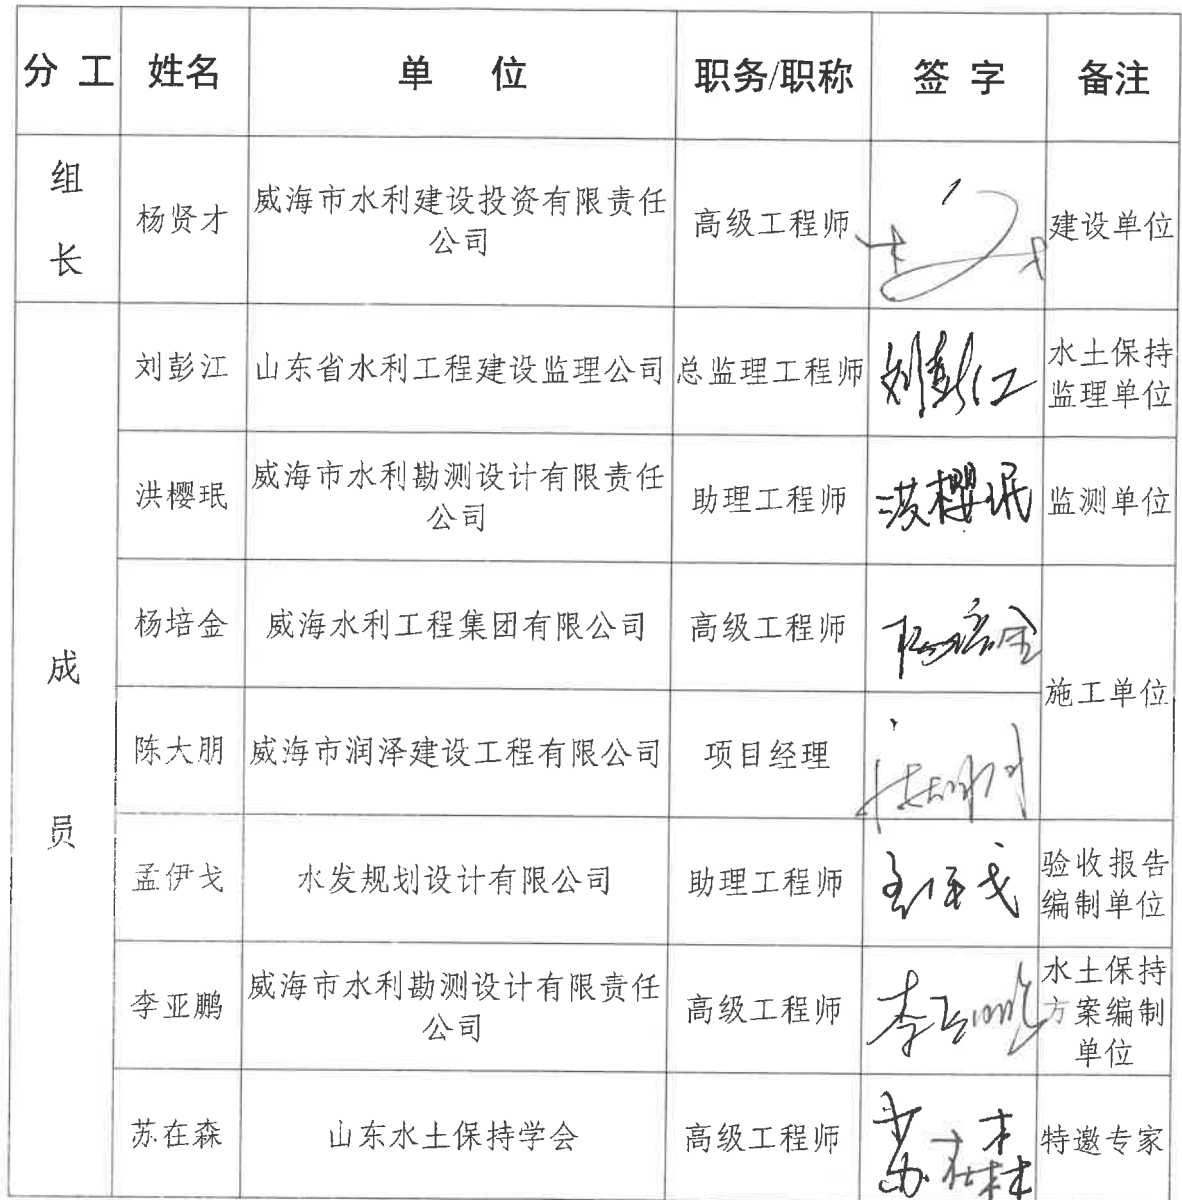 分 工 姓名 单 位 职务/职称 签 字 备注
组
长
杨贤才
威海市水利建设投资有限责任
公司
高级工程师
建设单位
成
员
刘彭江
山东省水利工程建设监理公司
总监理工程师
刘彭江
水土保持
监理单位
洪樱珉
威海市水利勘测设计有限责任
公司
助理工程师
洪樱珉
监测单位
杨培金
威海水利工程集团有限公司
高级工程师
杨培金
施工单位
陈大朋
威海市润泽建设工程有限公司
项目经理
孟伊戈
水发规划设计有限公司
助理工程师
孟伊戈
验收报告
编制单位
李亚鹏
威海市水利勘测设计有限责任
公司
高级工程师
李亚鹏
水土保持
方案编制
单位
苏在森
山东水土保持学会
高级工程师
苏在森
特邀专家